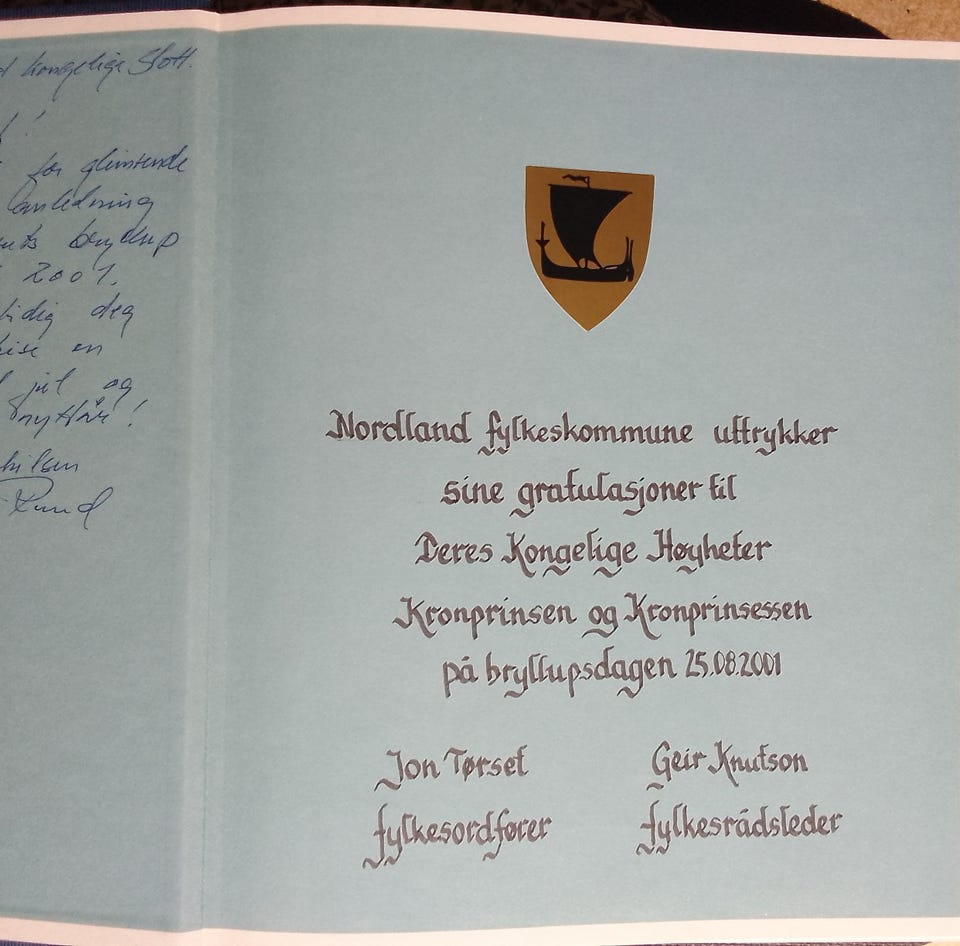 kongelige Slott.
for glimrende
anledning
bryllup
2001.
deg
en
jul og
nyttår!
Nordland fylkeskommune uttrykker
sine gratulasjoner til
Deres Kongelige Høyheter
Kronprinsen og Kronprinsessen
på bryllupsdagen 25.08.2001
Jon Tørset
fylkesordfører
Geir Knutson
fylkesrådsleder